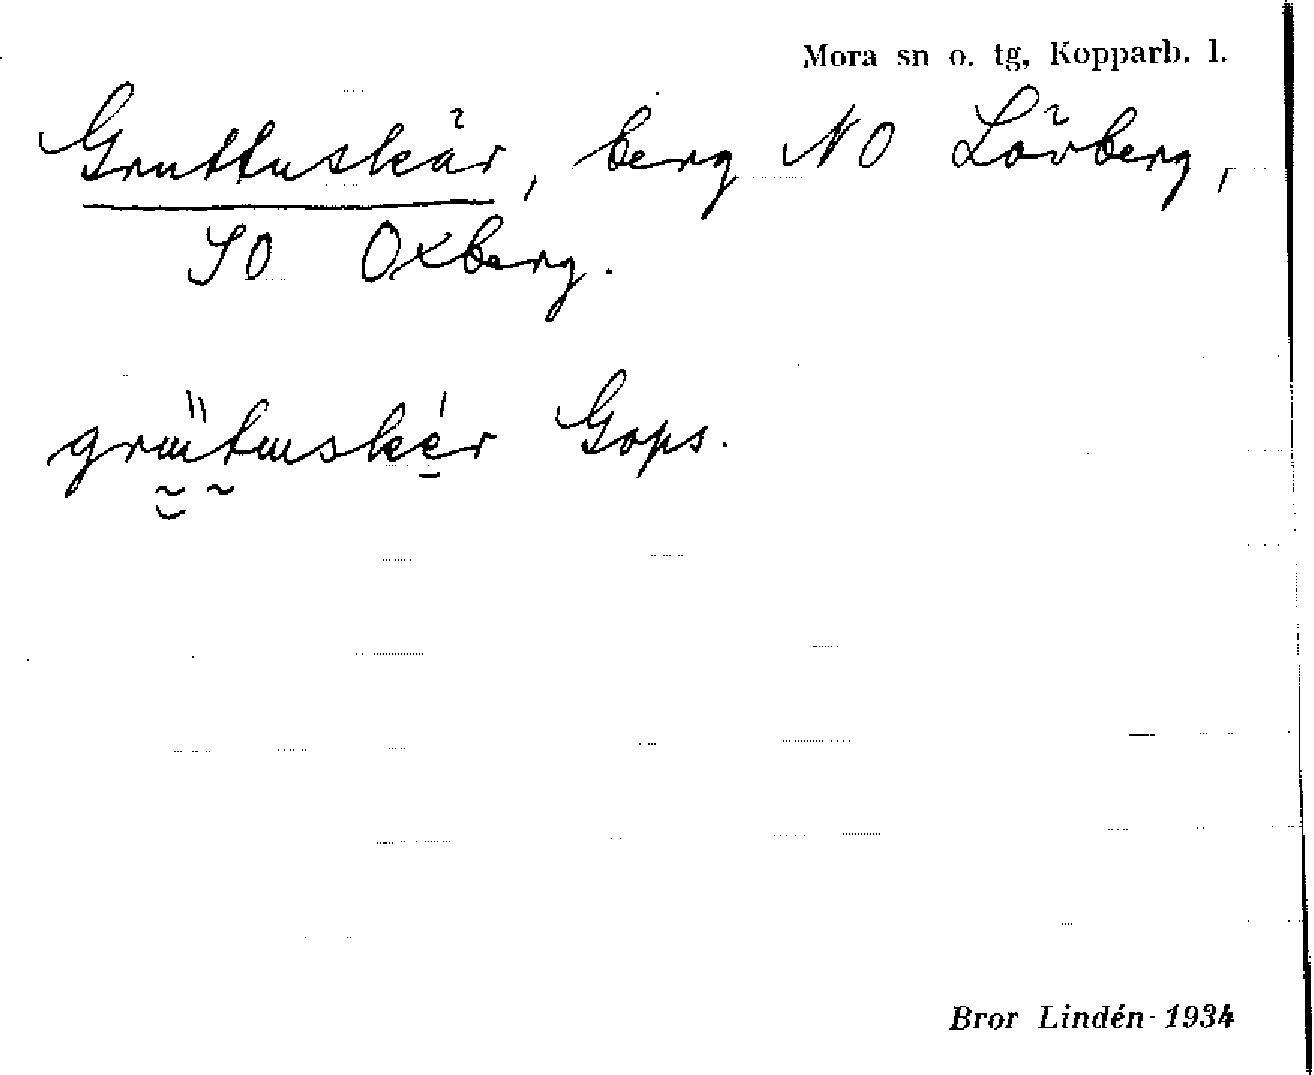 Mora sn o. tg, Kopparb. l.
Gruttuskär, berg NO Lövberg,
SO Oxberg.
Gops.
Bror Lindén 1934